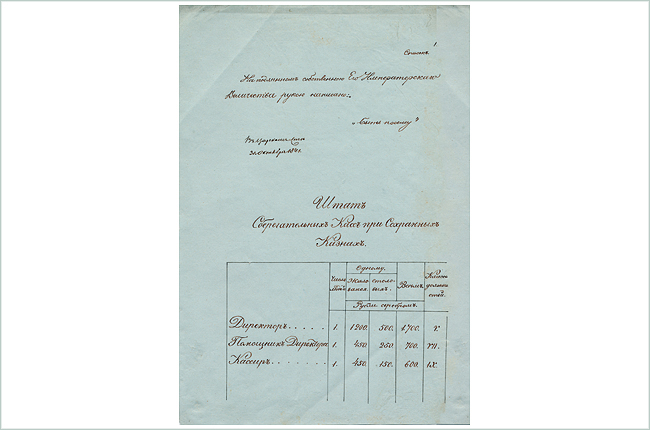 1
Списокъ
На подлинномъ собственною Его Императорскаго
Величества рукою написано:
„Быть по сему"
Въ Царскомъ Селѣ
30 Октября 1841.
Штатъ
Сберегательныхъ Кассъ при Сохранныхъ
Казнахъ.
Число Одному. Всѣмъ. Классъ
Жало- столо- должно-
ванья. выхъ. стей.
Рубли серебромъ.
Директоръ...... 1. 1200. 500. 1700.
Помощникъ Директора 1. 450. 250. 700. VII.
Кассиръ...... 1. 450. 150. 600. IX.